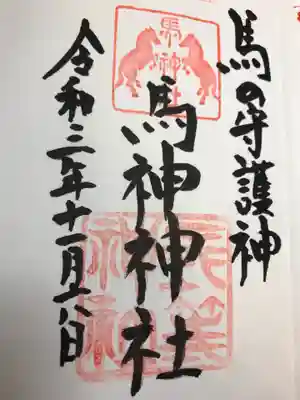 馬の守護神
馬神神社
長等
神社
令和三年十一月六日